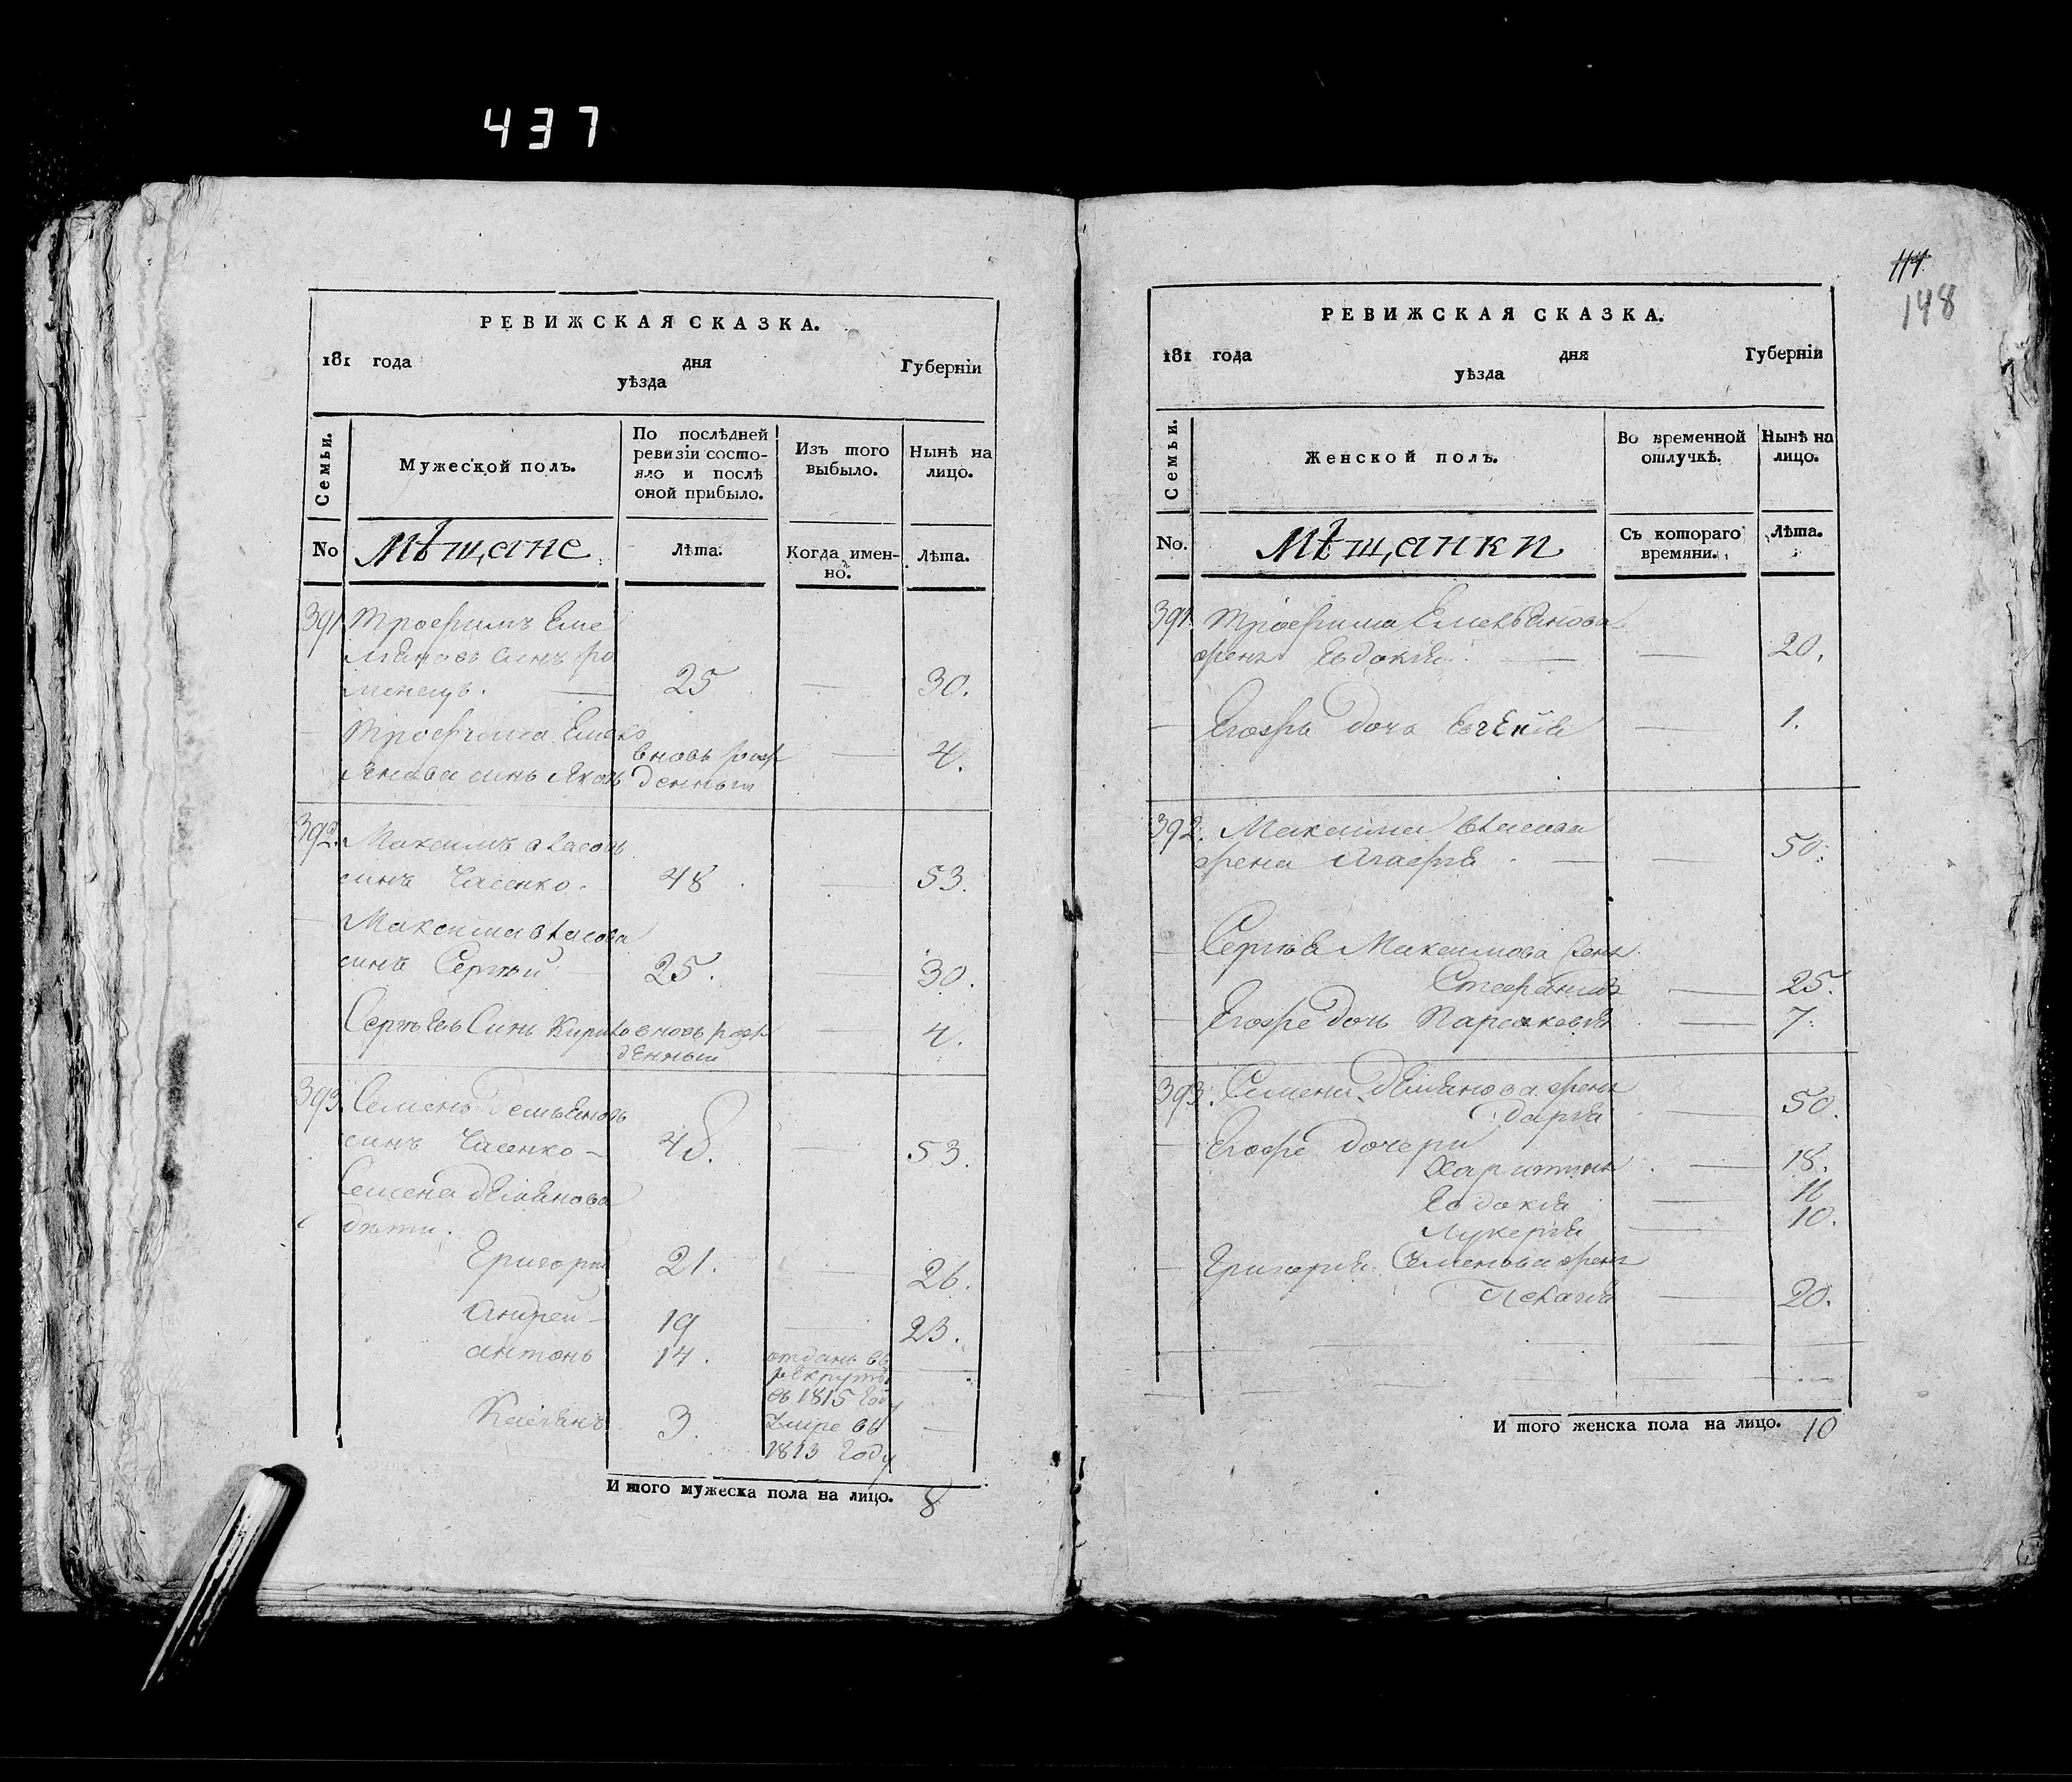 437
РЕВИЖСКАЯ СКАЗКА.
181 года дня Губерніи
уѣзда
Семьи.
Мужеской полъ.
По послѣдней
ревизіи состо-
яло и послѣ
оной прибыло.
Изъ того
выбыло.
Нынѣ на
лицо.
No
Мѣщане
Лѣта.
Когда имен-
но.
Лѣта.
391 Трофимъ Еме
синъ ро
менецъ. — 25 — 30.
Трофима Емель
янова синъ Яковъ вновь рож
денный — 4.
392. Максимъ власовъ
синъ Часенко. 48. — 53.
Максима власова
синъ Сергѣй 25. — 30.
Сергѣевъ Синъ Кирило вновь рож
дѣнный — 4.
393. Семенъ Демьяновъ
синъ Часенко — 48. — 53.
Семена демянова
дѣти.
Григорий 21. — 26.
Андрей — 19 — 23.
антонъ 14. отданъ въ
рекруты —
въ 1815 году
Касіянъ 3. умре въ —
1813 году
И того мужеска пола на лицо. 8
114
148
РЕВИЖСКАЯ СКАЗКА.
181 года дня Губерніи
уѣзда
Семьи.
Женской полъ.
Во временной
отлучкѣ.
Нынѣ на
лицо.
No.
Мѣщанки
Съ котораго
времяни.
Лѣта.
391. Трофима Емельянова
жена Евдокия — 20.
— Егожъ дочь — 1.
392. Максима власова
жена Агафия — 50.
— Сергѣя Максимова жена
Стефанида — 25.
— Егоже дочь Парасковия — 7.
393. Семена демянова жена
дария — 50.
— Егоже дочери
Харитина — 18.
Евдокия — 11
Лукерия — 10.
— Григория Семенова жена
Пелагия — 20.
И того женска пола на лицо. 10